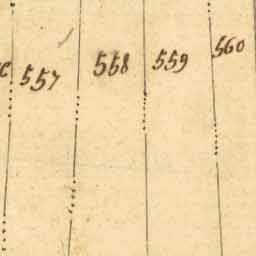 557 558 559 560